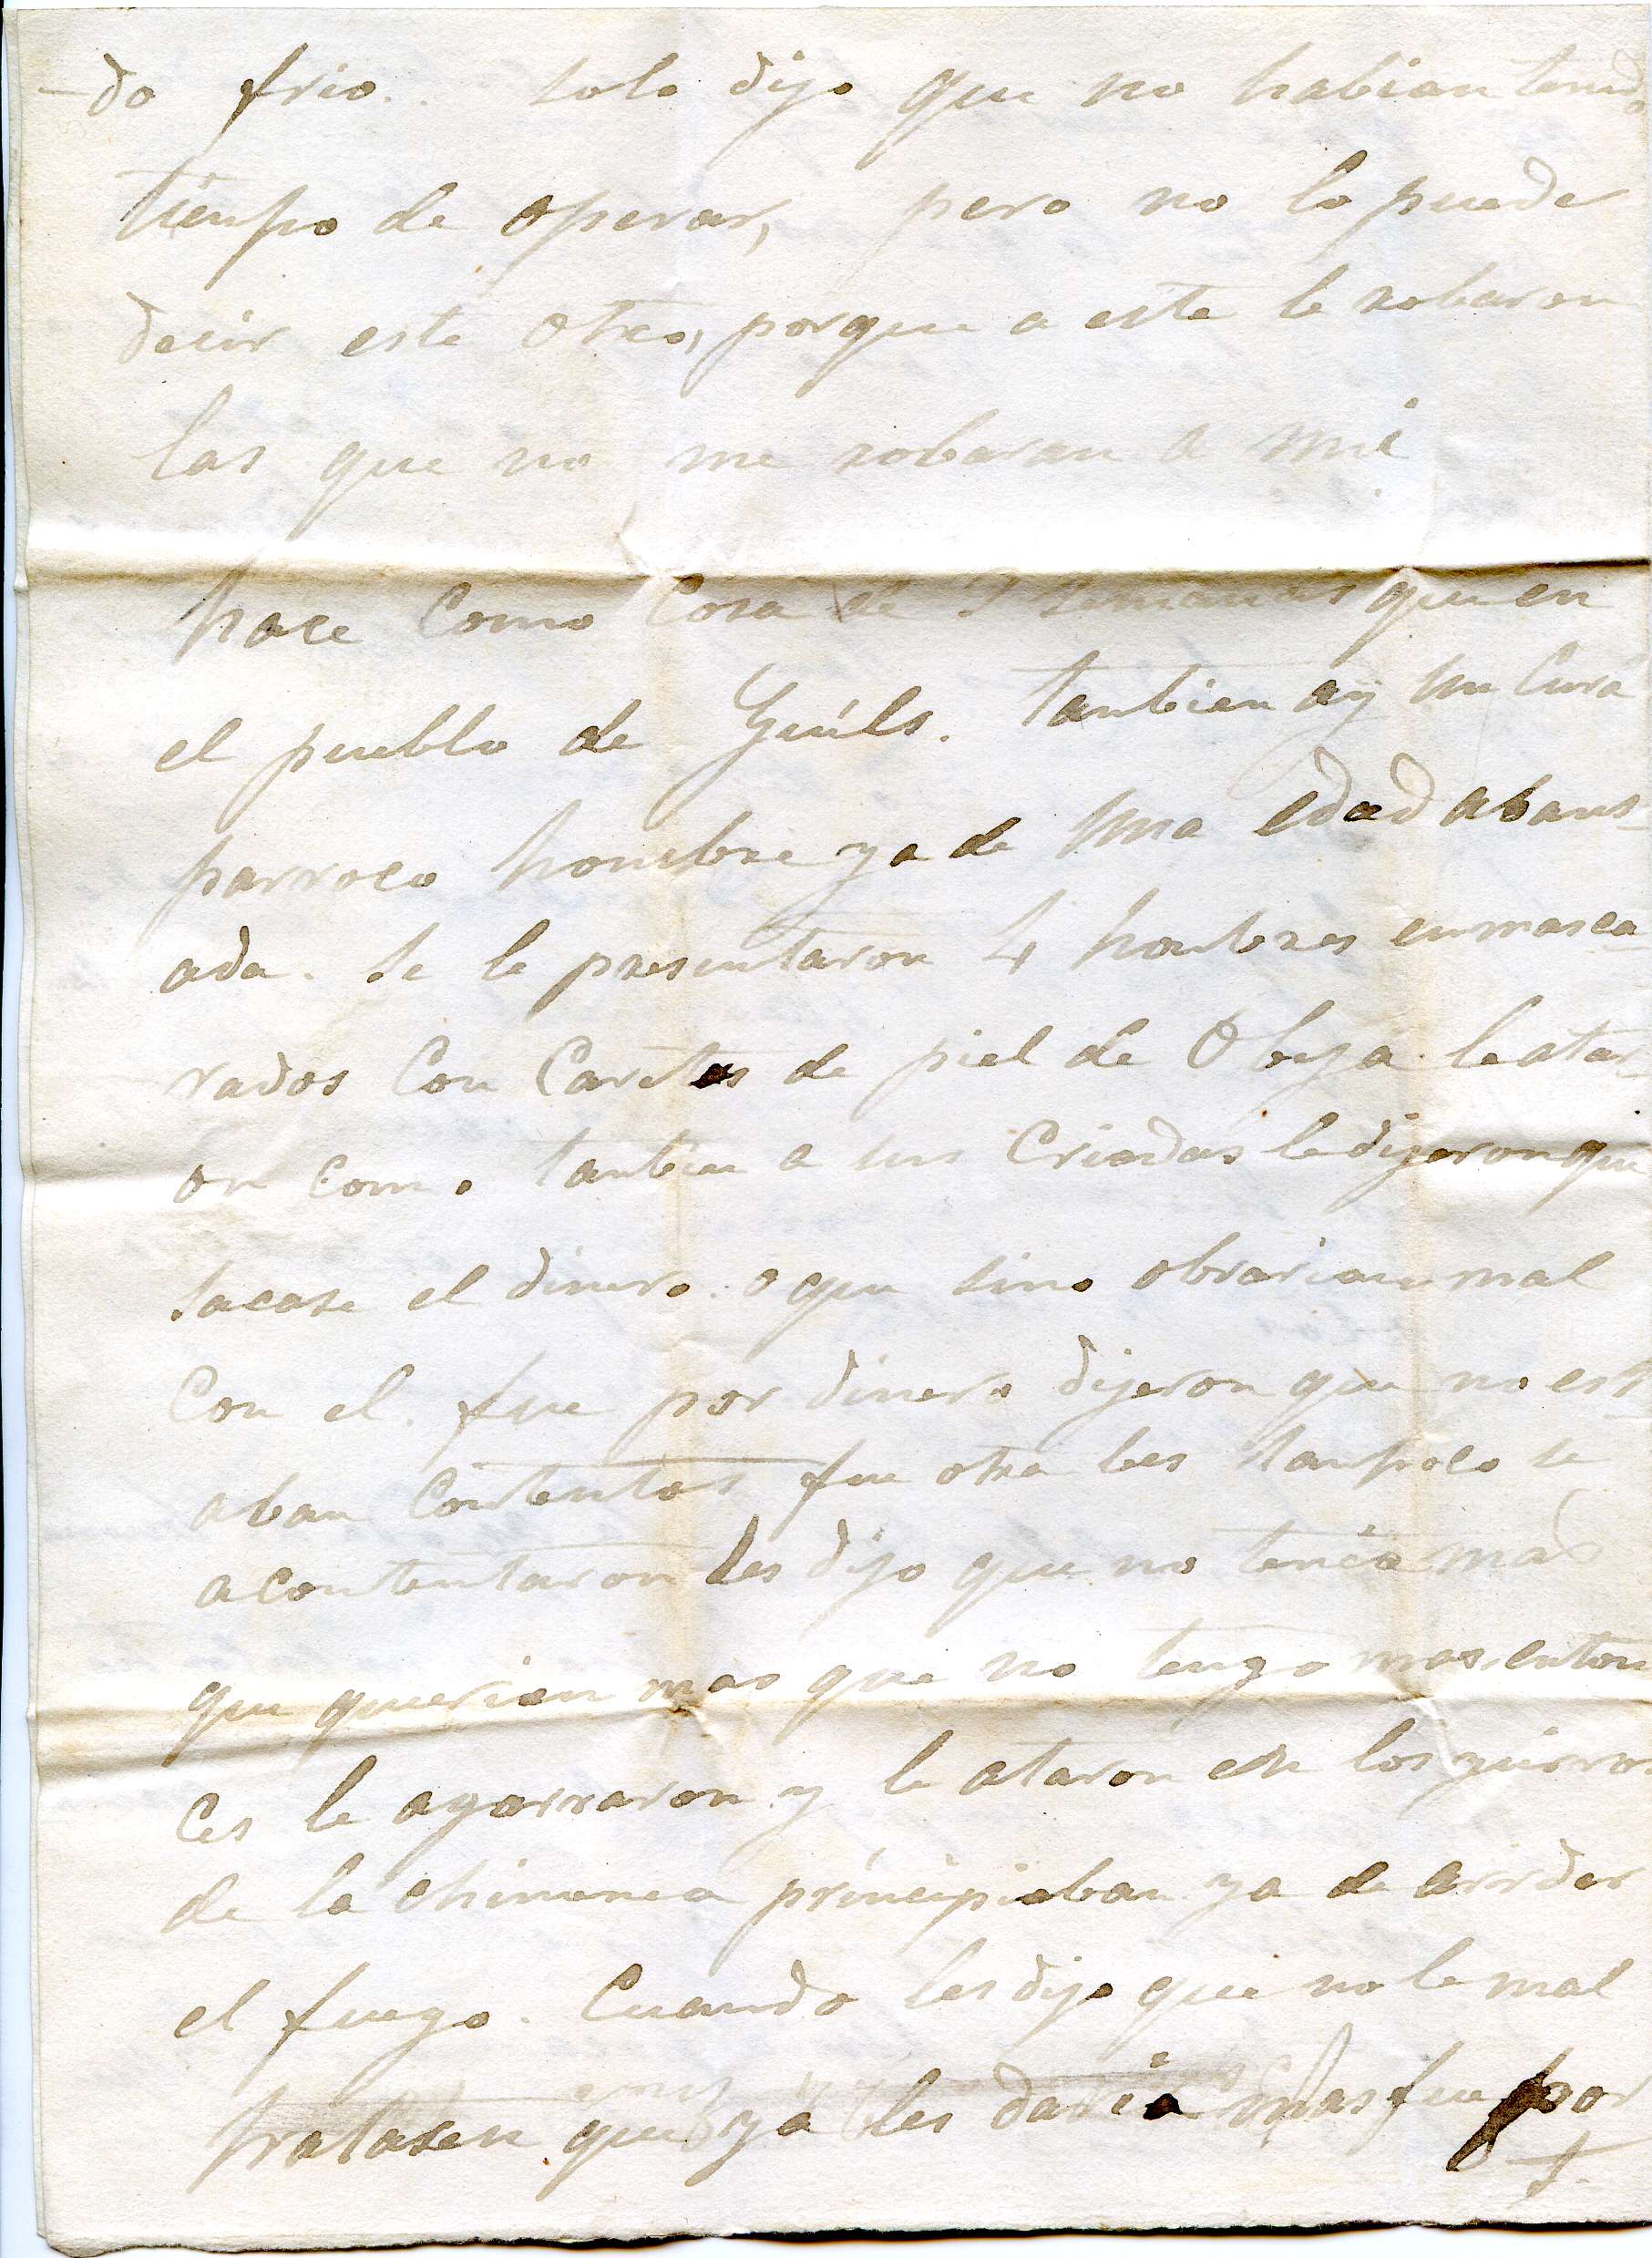 -do frio.. solo dijo que no habian tenido
tienpo de operar, pero no lo puede
decir este otro, porque a este le robaron
las que no me robaran a mi
hace como Cosa de semanas que en
el pueblo de Guils. tanbien ay un Cura
parroco honbre ya de una edad abans-
ada. se le presentaron 4 honbres enmasca
rados Con Caretas de piel de Obeja le atar-
on como tanbien a sus Criadas le dijeron que
sacase el dinero. o que sino obrarian mal
Con el. fue por dinero dijeron que no est-
aban Contentos fue otra bes tanpoco se
acontentaron les dijo que no tenia mas
que querian mas que no tengo mas. enton
ces le agarraron y le ataron en los
de la chimenea principiaban ya de arrder
el fuego. Cuando les dijo que no le mal
tratasen que ya les daria mas fue por